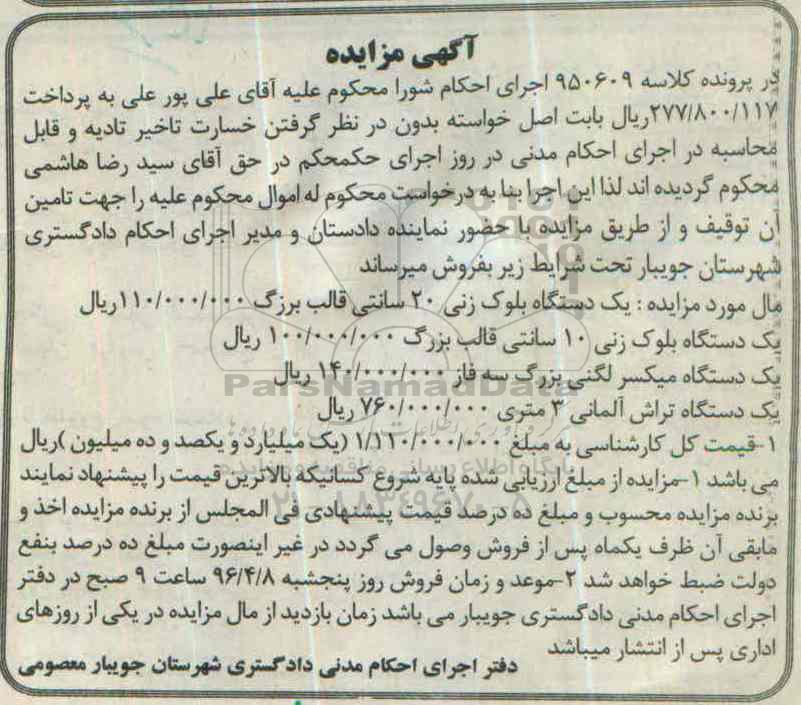 آگهی مزایده
در پرونده کلاسه ۹۵۰۶۰۹ اجرای احکام شورا محکوم علیه آقای علی پور علی به پرداخت
۲۷۷/۸۰۰/۱۱۷ریال بابت اصل خواسته بدون در نظر گرفتن خسارت تاخیر تادیه و قابل
محاسبه در اجرای احکام مدنی در روز اجرای حکمحکم در حق آقای سید رضا هاشمی
محکوم گردیده اند لذا این اجرا بنا به درخواست محکوم له اموال محکوم علیه را جهت تامین
آن توقیف و از طریق مزایده با حضور نماینده دادستان و مدیر اجرای احکام دادگستری
شهرستان جویبار تحت شرایط زیر بفروش میرساند
مال مورد مزایده : یک دستگاه بلوک زنی ۲۰ سانتی قالب برزگ ۱۱۰/۰۰۰/۰۰۰ریال
یک دستگاه بلوک زنی ۱۰ سانتی قالب بزرگ ۱۰۰/۰۰۰/۰۰۰ ریال
یک دستگاه میکسر لگنی بزرگ سه فاز ۱۴۰/۰۰۰/۰۰۰ ریال
ParsNamadData
یک دستگاه تراش آلمانی ۳ متری ۷۶۰/۰۰۰/۰۰۰ ریال
۱-قیمت کل کارشناسی به مبلغ ۱/۱۱۰/۰۰۰/۰۰۰ (یک میلیارد و یکصد و ده میلیون )ریال
می باشد ۱-مزایده از مبلغ ارزیابی شده پایه شروع کسانیکه بالاترین قیمت را پیشنهاد نمایند
برنده مزایده محسوب و مبلغ ده درصد قیمت پیشنهادی فی المجلس از برنده مزایده اخذ و
مابقی آن ظرف یکماه پس از فروش وصول می گردد در غیر اینصورت مبلغ ده درصد بنفع
دولت ضبط خواهد شد ۲-موعد و زمان فروش روز پنجشبه ۹۶/۴/۸ ساعت ۹ صبح در دفتر
اجرای احکام مدنی دادگستری جویبار می باشد زمان بازدید از مال مزایده در یکی از روزهای
اداری پس از انتشار میباشد
دفتر اجرای احکام مدنی دادگستری شهرستان جویبار معصومی